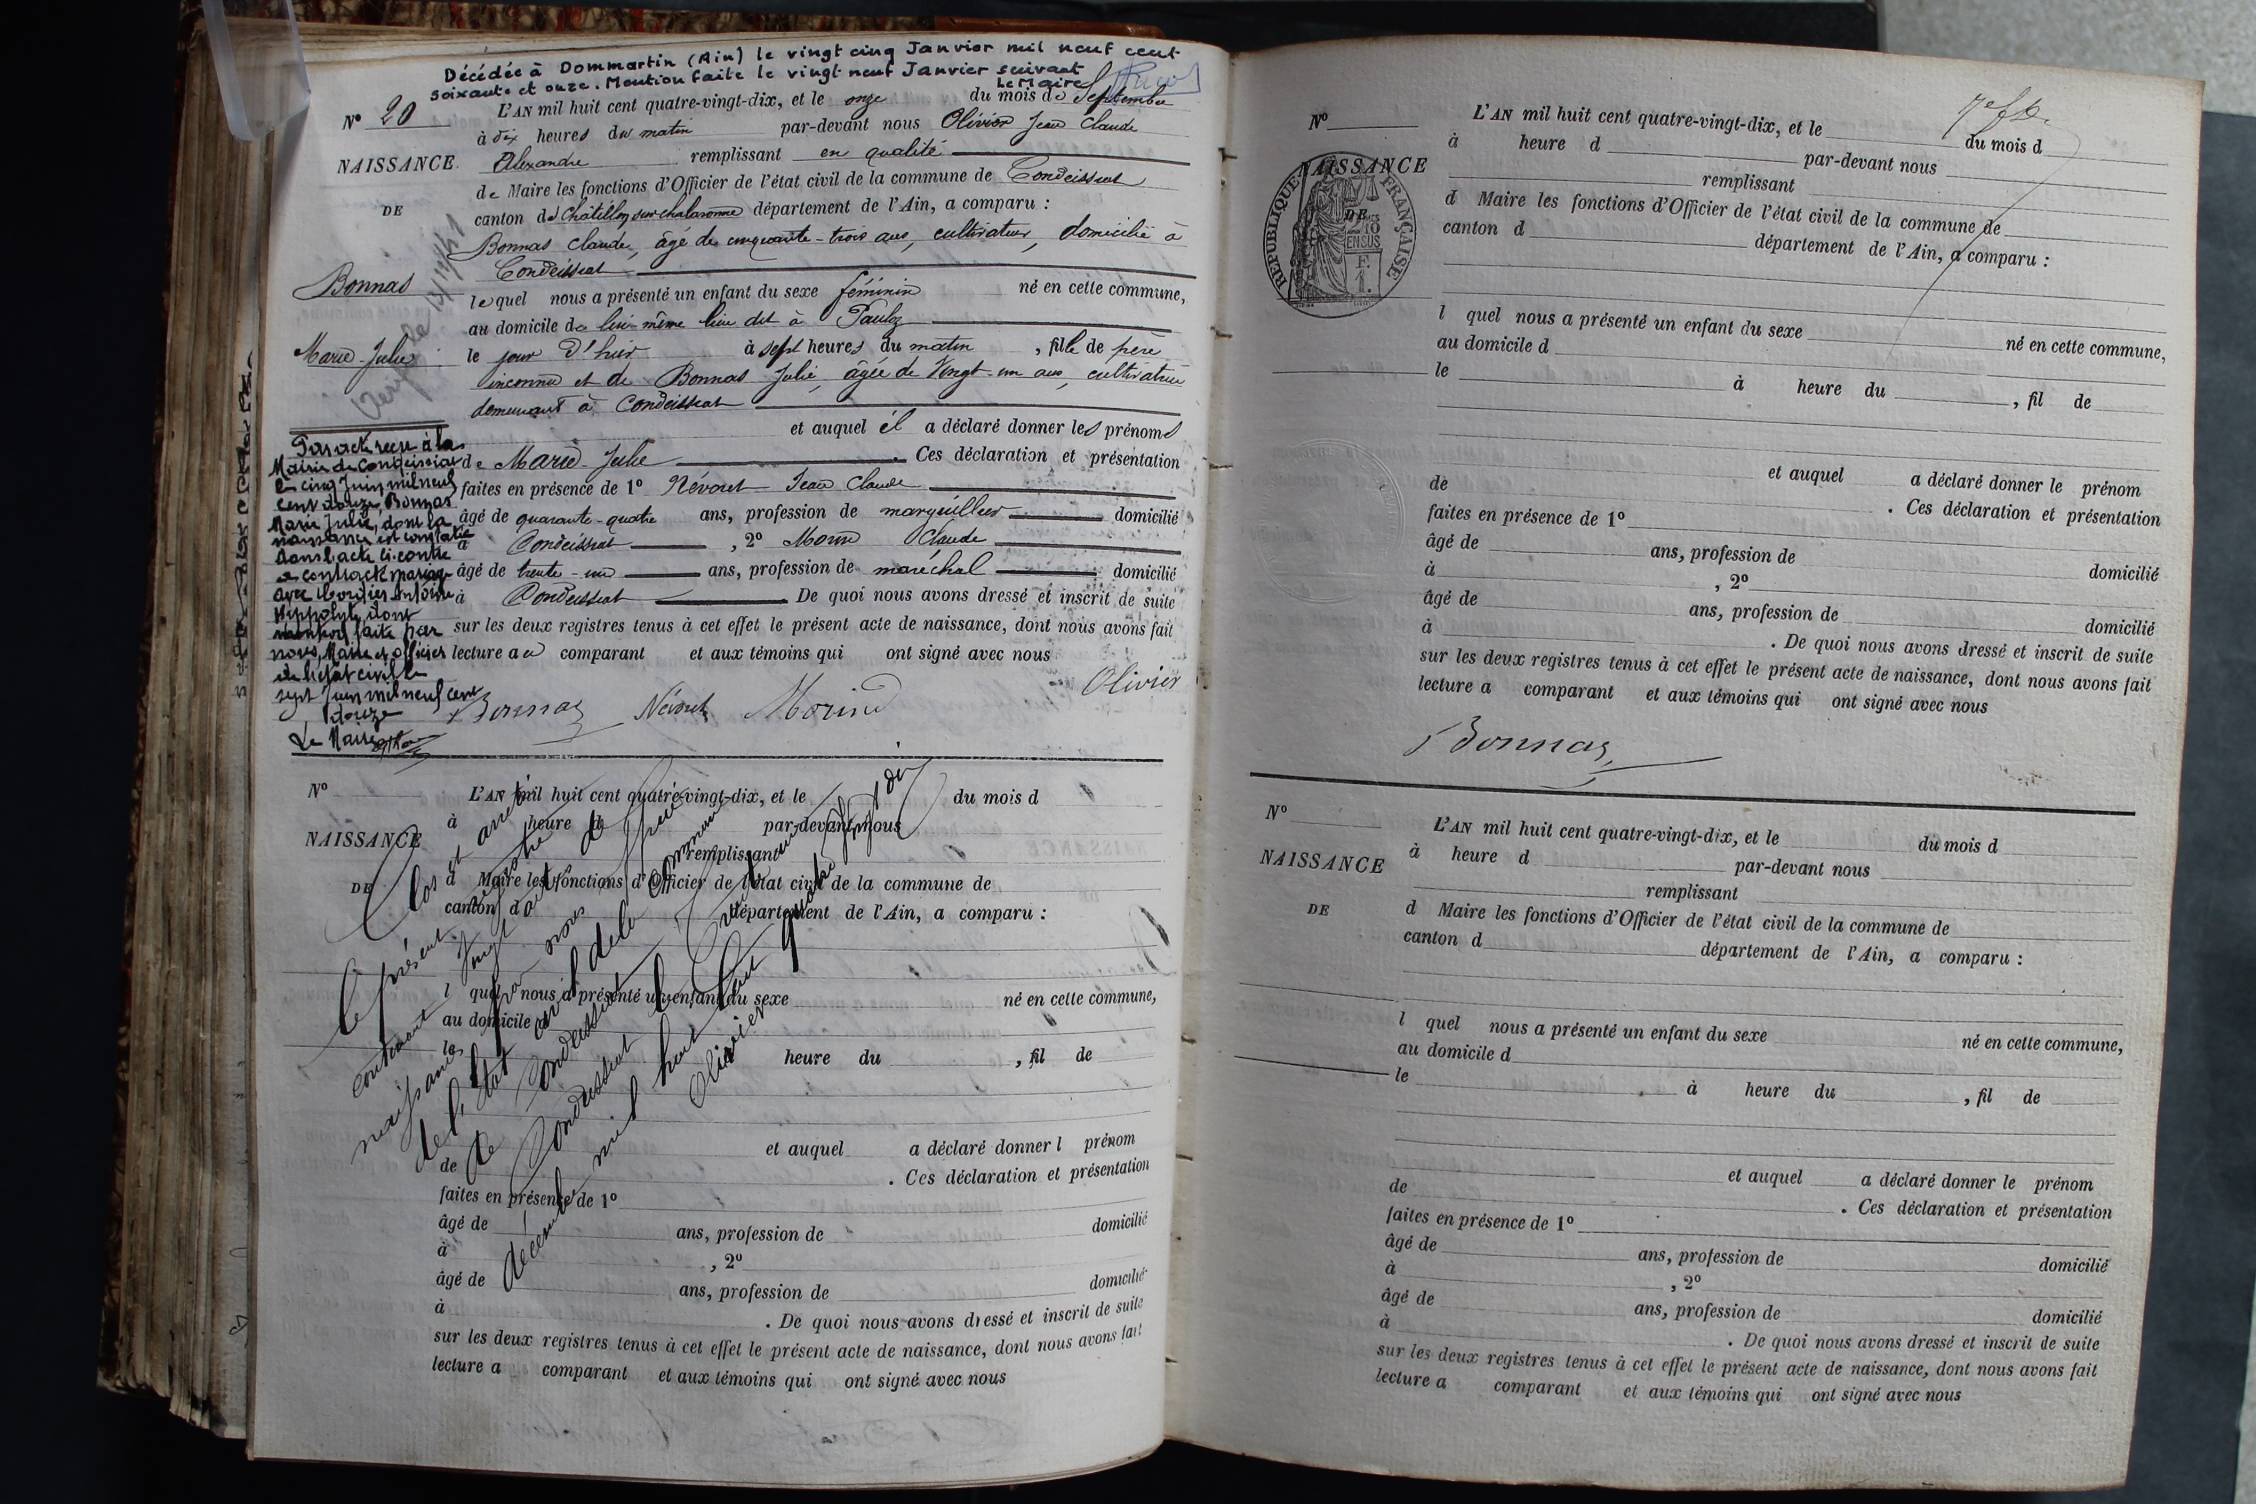 Décédée à Dommartin (Ain) le vingt cinq Janvier mil neuf cent
soixante et onze. Mention faite le vingt neuf Janvier suivant
Le Maire
N° 20
NAISSANCE
DE
Bonnas
Marie Julie
L'AN mil huit cent quatre-vingt-dix, et le onze du mois de Septembre
à dix heures du matin par-devant nous Olivier Jean Claude
Alexandre remplissant en qualité
de Maire les fonctions d'Officier de l'état civil de la commune de Condeissiat
canton de Châtillon sur Chalaronne département de l'Ain, a comparu :
Bonnas Claude, âgé de cinquante-trois ans, cultivateur, domicilié à
Condeissiat
lequel nous a présenté un enfant du sexe féminin né en cette commune,
au domicile de lui-même lieu dit à
le jour d'hier à sept heures du matin, fille de père
inconnu et de Bonnas Julie, âgée de Vingt-un ans, cultivatrice
demeurant à Condeissiat
et auquel il a déclaré donner les prénoms
de Marie Julie. Ces déclaration et présentation
faites en présence de 1° Névoret Jean Claude
âgé de quarante-quatre ans, profession de marguillier domicilié
à Condeissiat, 2° Morin Claude
âgé de trente-un ans, profession de maréchal domicilié
à Condeissiat De quoi nous avons dressé et inscrit de suite
sur les deux registres tenus à cet effet le présent acte de naissance, dont nous avons fait
lecture au comparant et aux témoins qui ont signé avec nous
Bonnas Névoret Morin Olivier
Par acte reçu à la
Mairie de Condeissiat
le cinq Juin mil neuf
cent douze, Bonnas
Marie Julie, dont la
naissance est constatée
dans l'acte ci-contre
a contracté mariage
avec Cordier Antoine
Hippolyte dont
mention faite par
nous, Maire et officier
de l'état civil le
sept Juin mil neuf cent
douze
Le Maire
N°
NAISSANCE
DE
L'AN mil huit cent quatre-vingt-dix, et le du mois d
à heure d par-devant nous
remplissant
d Maire les fonctions d'Officier de l'état civil de la commune de
canton d département de l'Ain, a comparu :
l quel nous a présenté un enfant du sexe né en cette commune,
au domicile d
le à heure du , fil de
et auquel a déclaré donner l prénom
de . Ces déclaration et présentation
faites en présence de 1°
âgé de ans, profession de domicilié
à , 2°
âgé de ans, profession de domicilié
à . De quoi nous avons dressé et inscrit de suite
sur les deux registres tenus à cet effet le présent acte de naissance, dont nous avons fait
lecture a comparant et aux témoins qui ont signé avec nous
Clos et arrêté
le présent registre
contenant vingt actes de
naissances par nous officier
de l'état civil de la commune
de Condeissiat
Condeissiat le trente un
décembre mil huit cent quatre vingt dix
Olivier
N°
NAISSANCE
DE
RÉPUBLIQUE FRANÇAISE
L'AN mil huit cent quatre-vingt-dix, et le du mois d
à heure d par-devant nous
remplissant
d Maire les fonctions d'Officier de l'état civil de la commune de
canton d département de l'Ain, a comparu :
l quel nous a présenté un enfant du sexe né en cette commune,
au domicile d
le à heure du , fil de
et auquel a déclaré donner le prénom
de . Ces déclaration et présentation
faites en présence de 1°
âgé de ans, profession de domicilié
à , 2°
âgé de ans, profession de domicilié
à . De quoi nous avons dressé et inscrit de suite
sur les deux registres tenus à cet effet le présent acte de naissance, dont nous avons fait
lecture a comparant et aux témoins qui ont signé avec nous
Bonnas
N°
NAISSANCE
DE
L'AN mil huit cent quatre-vingt-dix, et le du mois d
à heure d par-devant nous
remplissant
d Maire les fonctions d'Officier de l'état civil de la commune de
canton d département de l'Ain, a comparu :
l quel nous a présenté un enfant du sexe né en cette commune,
au domicile d
le à heure du , fil de
et auquel a déclaré donner le prénom
de . Ces déclaration et présentation
faites en présence de 1°
âgé de ans, profession de domicilié
à , 2°
âgé de ans, profession de domicilié
à . De quoi nous avons dressé et inscrit de suite
sur les deux registres tenus à cet effet le présent acte de naissance, dont nous avons fait
lecture a comparant et aux témoins qui ont signé avec nous